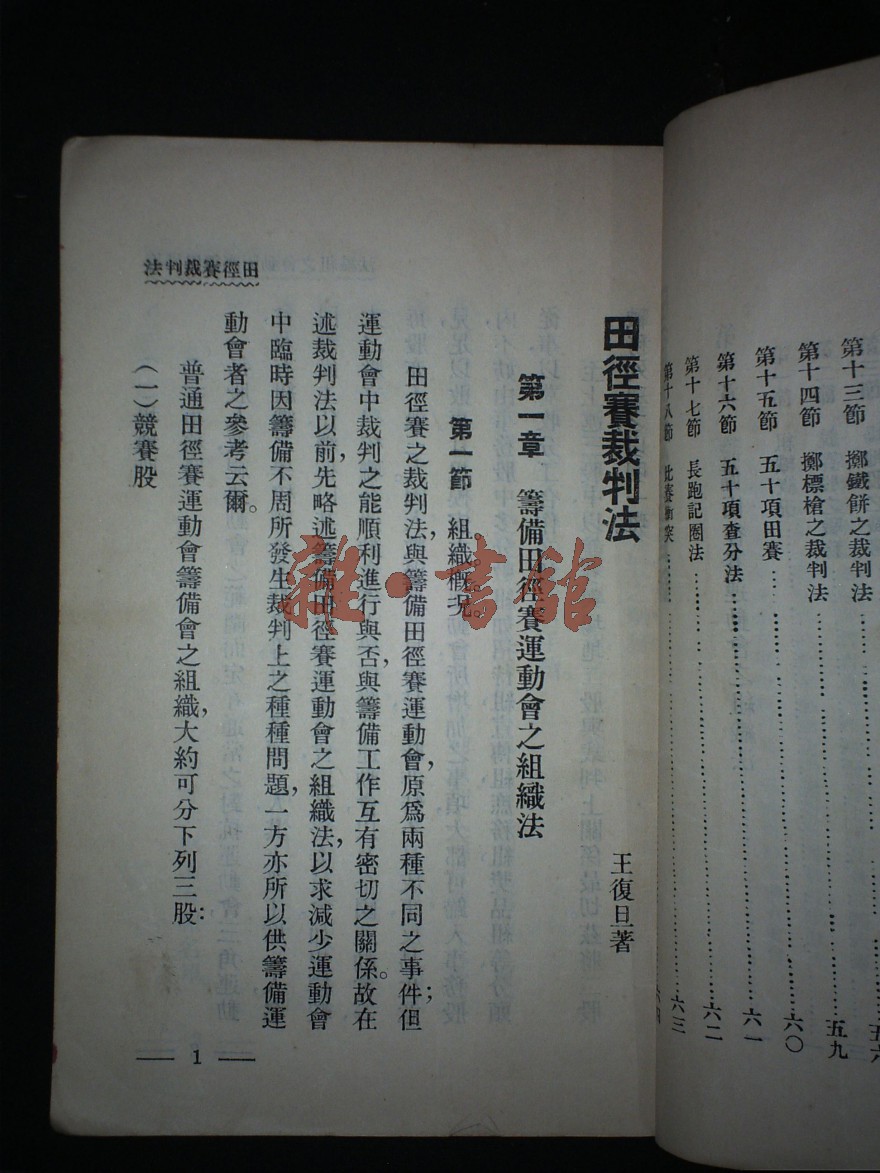 第十三節　擲鐵餅之裁判法
第十四節　擲標槍之裁判法……五九
第十五節　五十項田賽……六〇
第十六節　五十項查分法……六一
第十七節　長跑記圈法……六二
第十八節　比賽衝突……六三
田徑賽裁判法
王復旦著
第一章　籌備田徑賽運動會之組織法
第一節　組織概况。
田徑賽之裁判法,與籌備田徑賽運動會,原爲兩種不同之事件;但
運動會中裁判之能順利進行與否,與籌備工作互有密切之關係。故在
述裁判法以前,先略述籌備田徑賽運動會之組織法,以求減少運動會
中臨時因籌備不周所發生裁判上之種種問題,一方亦所以供籌備運
動會者之參考云爾。
普通田徑賽運動會籌備會之組織,大約可分下列三股:
(一)競賽股
田徑賽裁判法
— 1 —
雜·書館